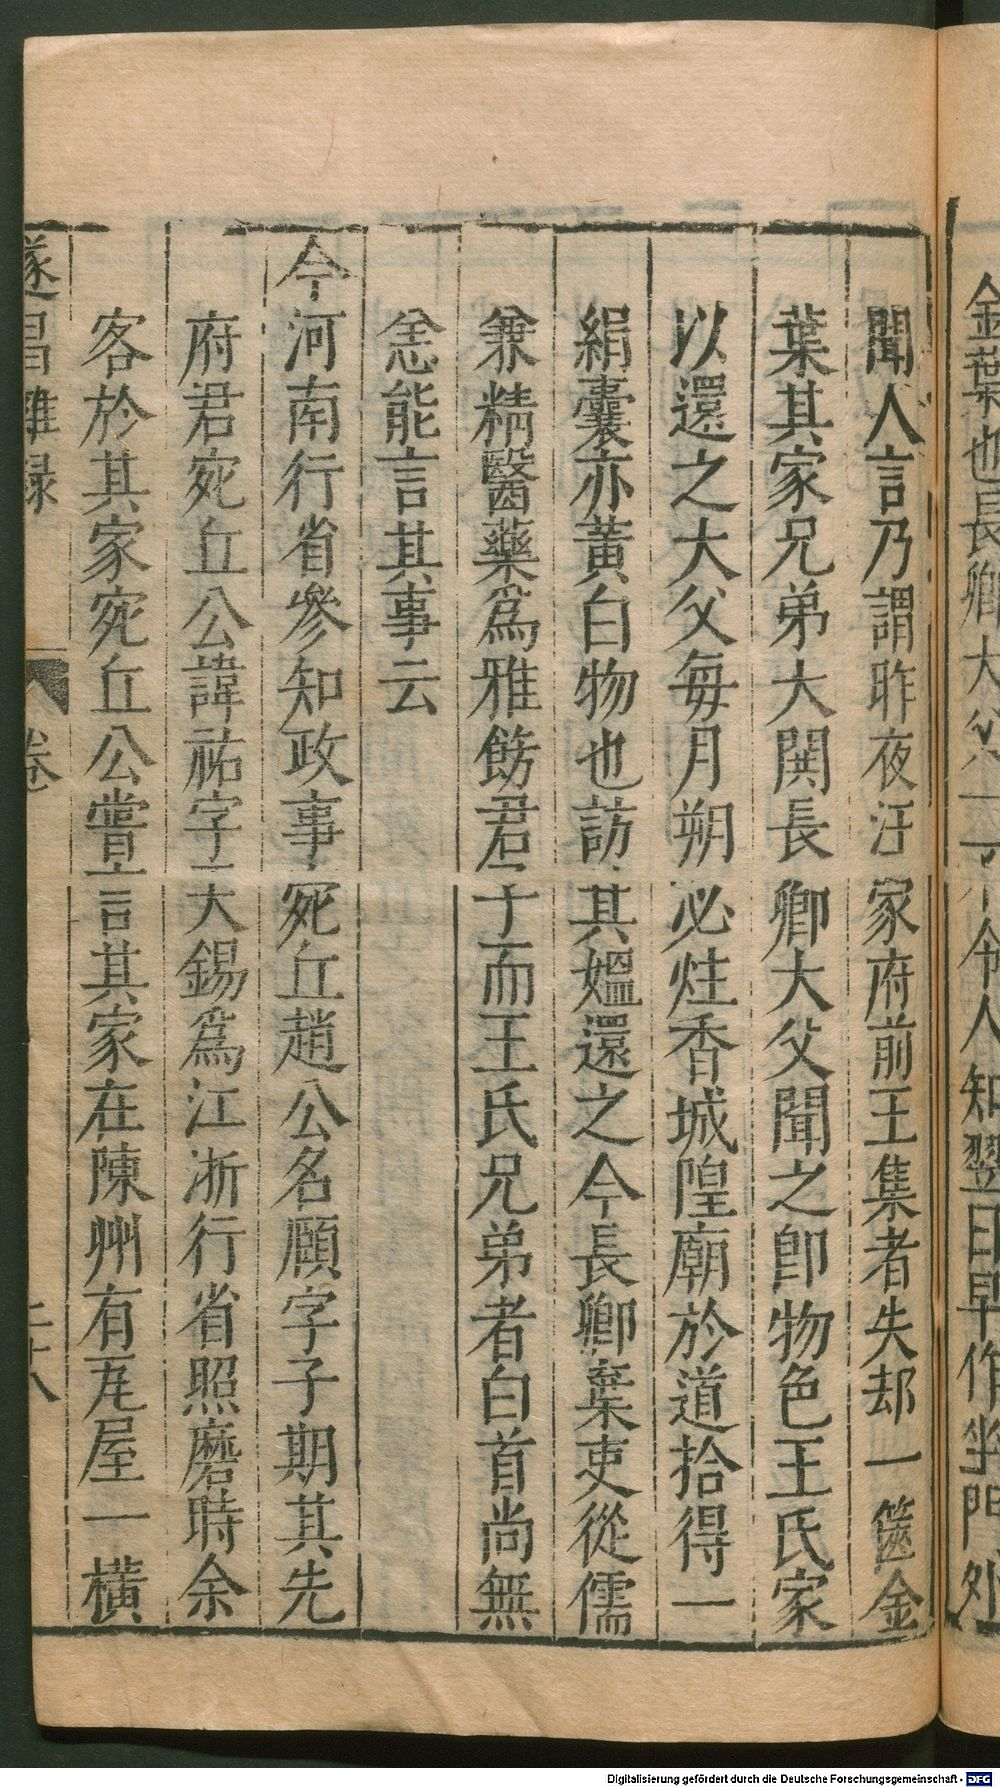 金葉也長卿大父一了不令人知翌日早作坐門外
聞人言乃謂昨夜汪家府前王集者失却一篋金
葉其家兄弟大鬨長卿大父聞之卽物色王氏家
以還之大父每月朔必炷香城隍廟於道拾得一
絹囊亦黃白物也訪其媼還之今長卿棄吏從儒
兼精醫藥爲雅飭君子而王氏兄弟者白首尚無
恙能言其事云
今河南行省參知政事宛丘趙公名頤字子期其先
府君宛丘公諱祐字天錫爲江浙行省照磨時余
客於其家宛丘公嘗言其家在陳州有瓦屋一橫
遂昌雜録 卷 二十八
Digitalisierung gefördert durch die Deutsche Forschungsgemeinschaft - DFG